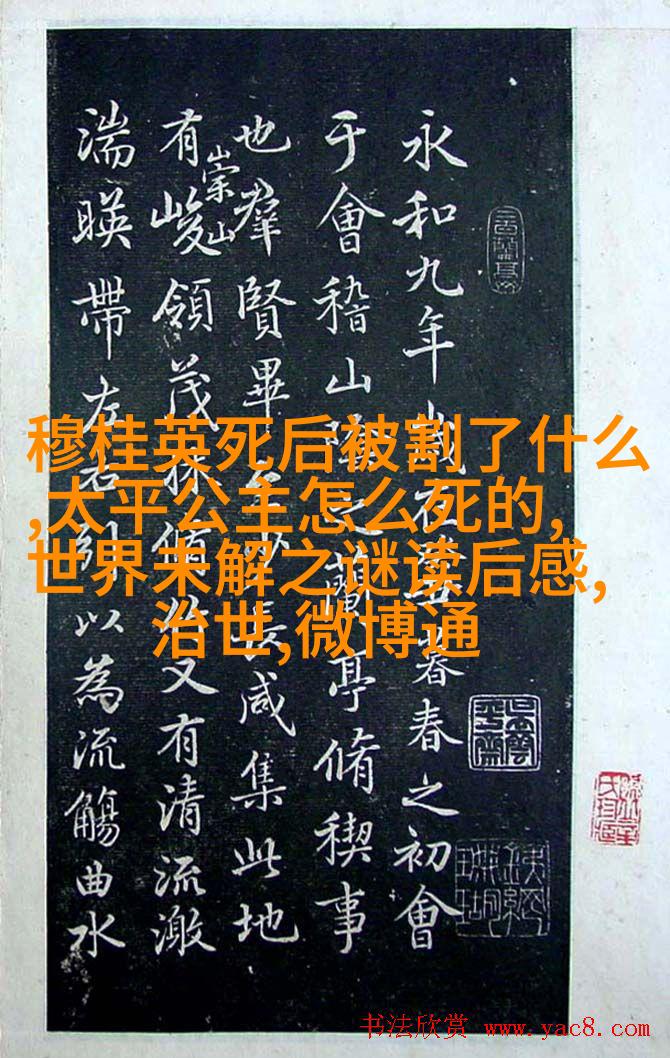 永和九年歲在癸丑暮春之初會
于會稽山陰之蘭亭脩稧事
也羣賢畢至少長咸集此地
有崇山峻領茂林脩竹又有清流激
湍暎帶左右引以為流觴曲水
穆桂英死后被割了什么
,太平公主怎么死的,
世界未解之谜读后感,
治世,微博通
书法欣赏 www.yac8.com